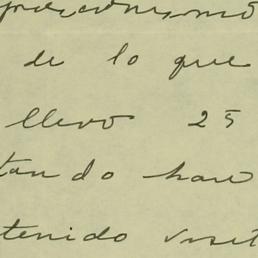 de lo que
llevo 25
tando hace
tenido visit